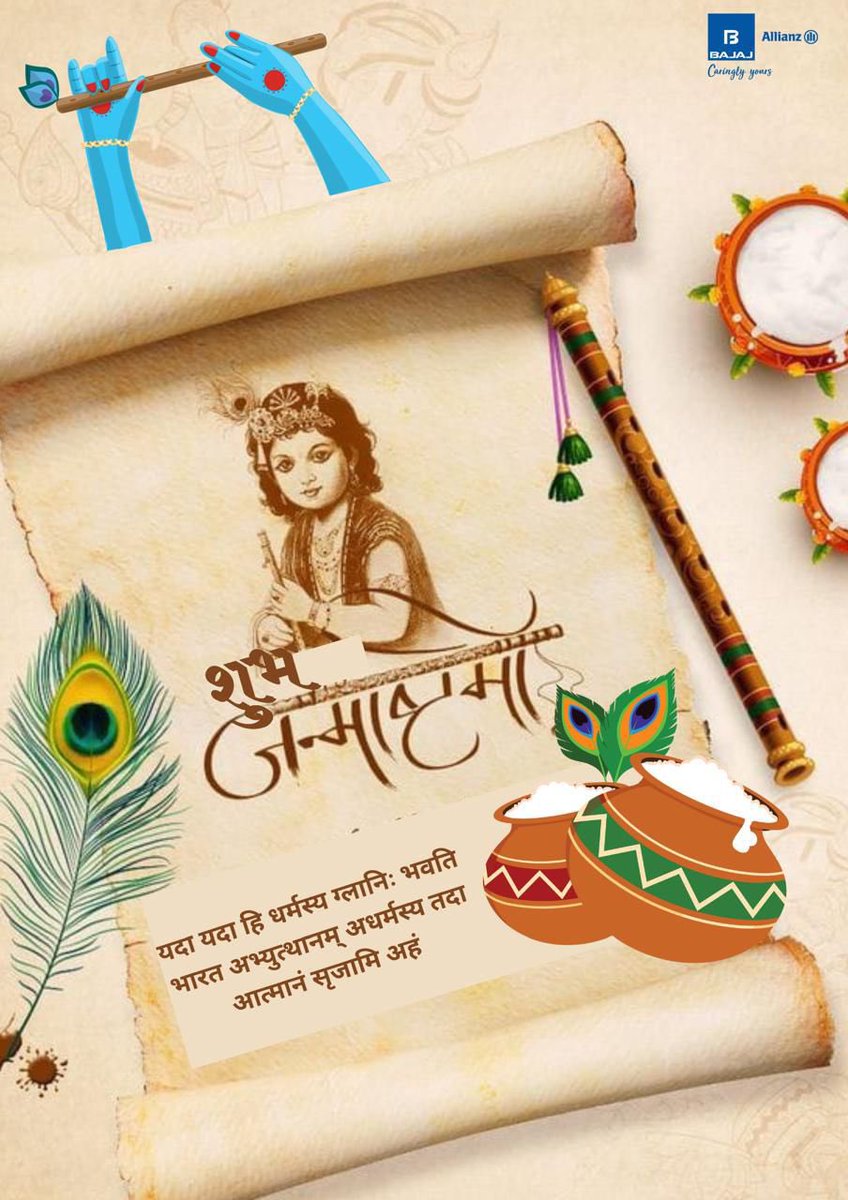 BAJAJ
Allianz
Caringly yours
शुभ
जन्माष्टमी
यदा यदा हि धर्मस्य ग्लानिः भवति
भारत अभ्युत्थानम् अधर्मस्य तदा
आत्मानं सृजामि अहं